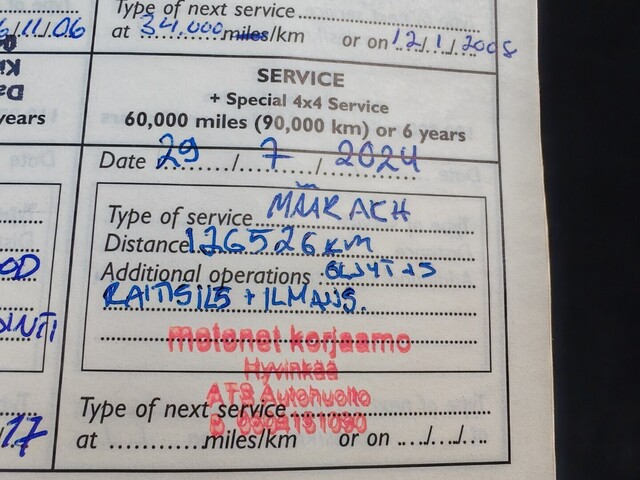 Type of next service
6/11/06
at 34.000 miles/km or on 12/1/2008
SERVICE
+ Special 4x4 Service
60,000 miles (90,000 km) or 6 years
years
Date 29/7/2024
Type of service
Distance 126526 km
Additional operations
RAITISILS + ILMANS.
motonet korjaamo
Hyvinkää
ATS Autohuolto
Type of next service
17
at miles/km or on ../../..